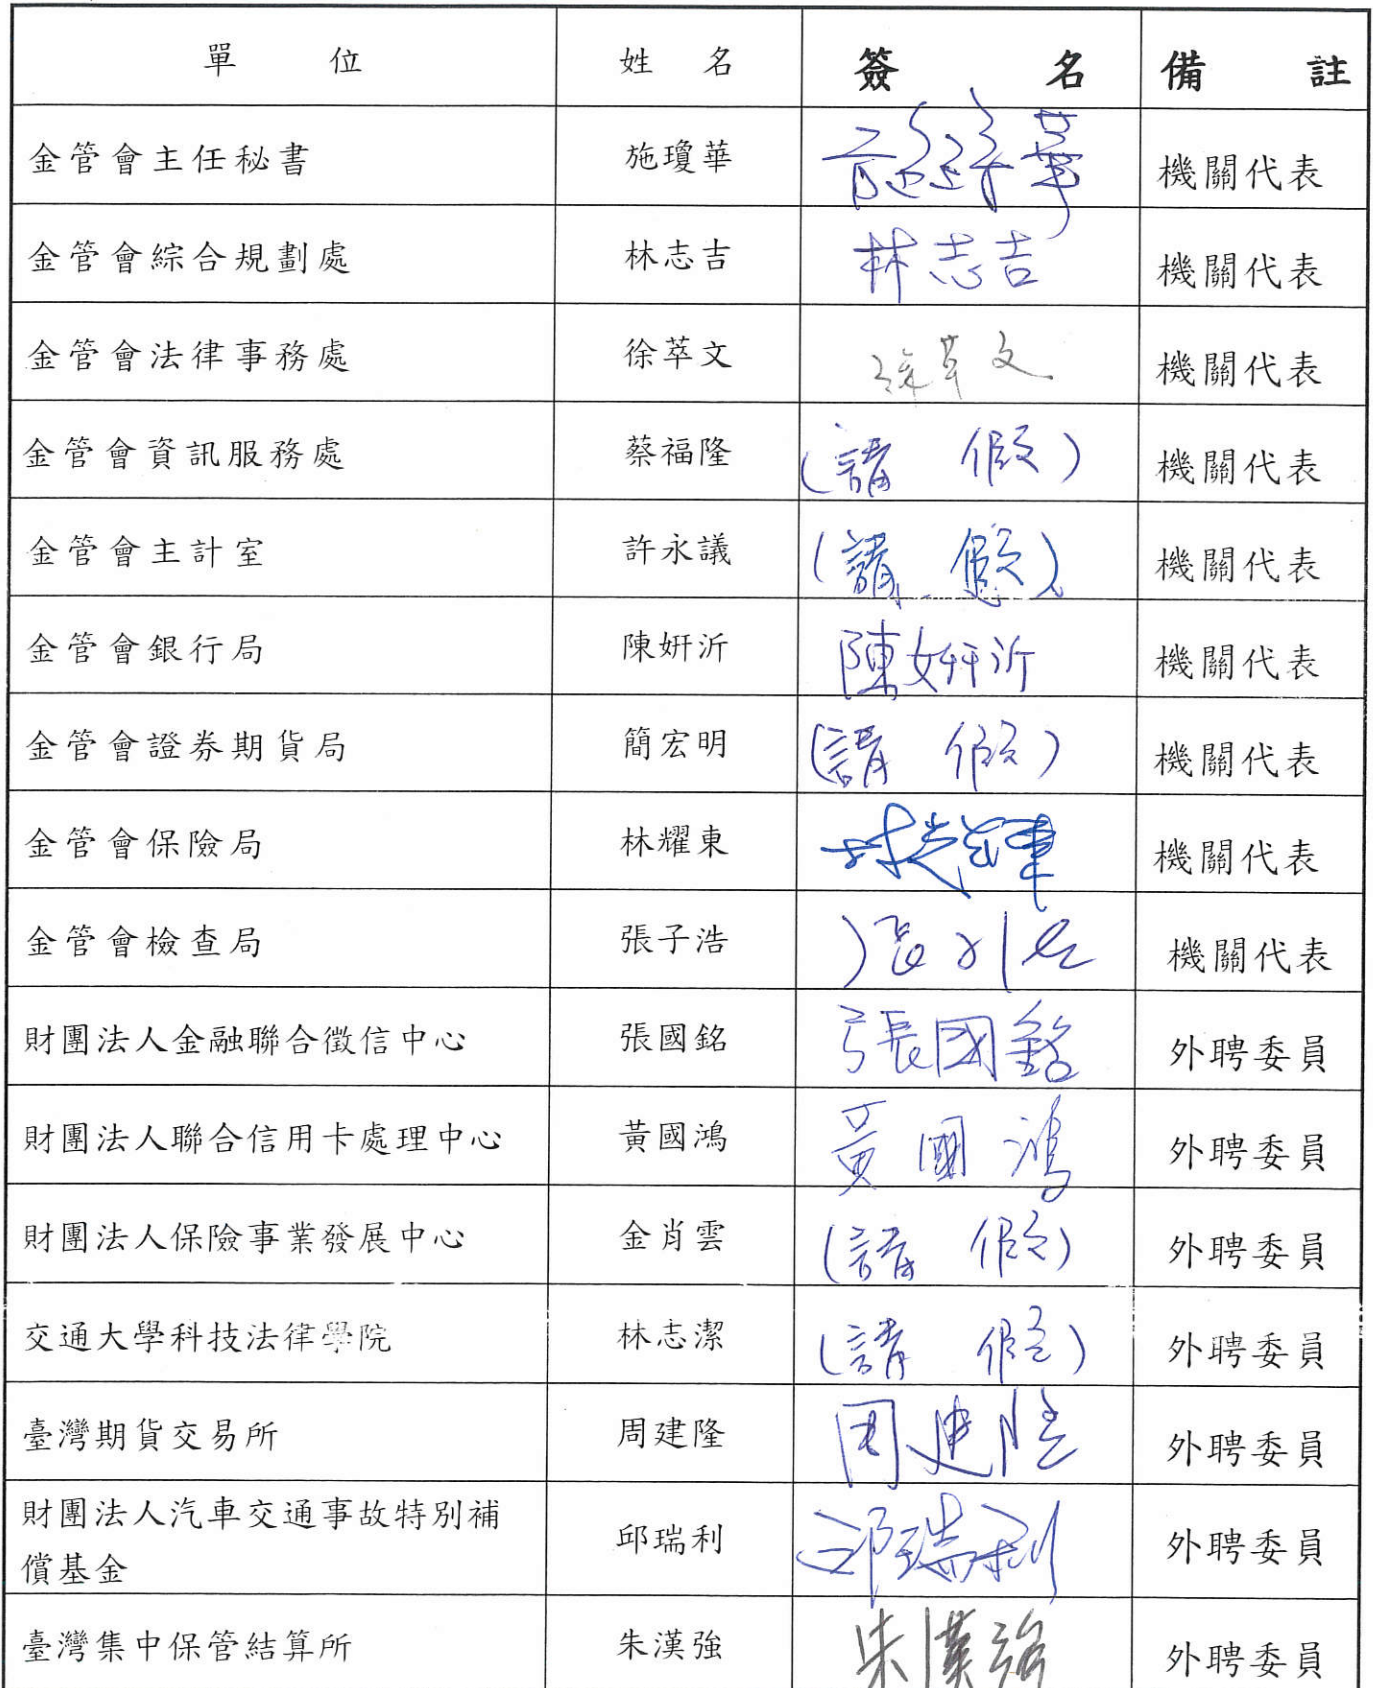 單 位 姓 名 簽 名 備 註
金管會主任秘書 施瓊華 機關代表
金管會綜合規劃處 林志吉 林志吉 機關代表
金管會法律事務處 徐萃文 徐萃文 機關代表
金管會資訊服務處 蔡福隆 (請 假) 機關代表
金管會主計室 許永議 (請 假) 機關代表
金管會銀行局 陳妍沂 陳妍沂 機關代表
金管會證券期貨局 簡宏明 (請 假) 機關代表
金管會保險局 林耀東 機關代表
金管會檢查局 張子浩 張子浩 機關代表
財團法人金融聯合徵信中心 張國銘 張國銘 外聘委員
財團法人聯合信用卡處理中心 黃國鴻 黃國鴻 外聘委員
財團法人保險事業發展中心 金肖雲 (請 假) 外聘委員
交通大學科技法律學院 林志潔 (請 假) 外聘委員
臺灣期貨交易所 周建隆 周建隆 外聘委員
財團法人汽車交通事故特別補
償基金 邱瑞利 邱瑞利 外聘委員
臺灣集中保管結算所 朱漢強 朱漢強 外聘委員